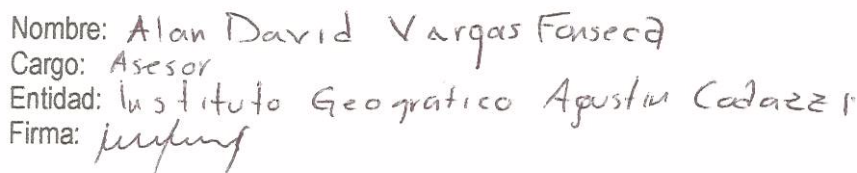 Nombre: Alan David Vargas Fonseca
Cargo: Asesor
Entidad: Instituto Geográfico Agustin Codazzi
Firma: